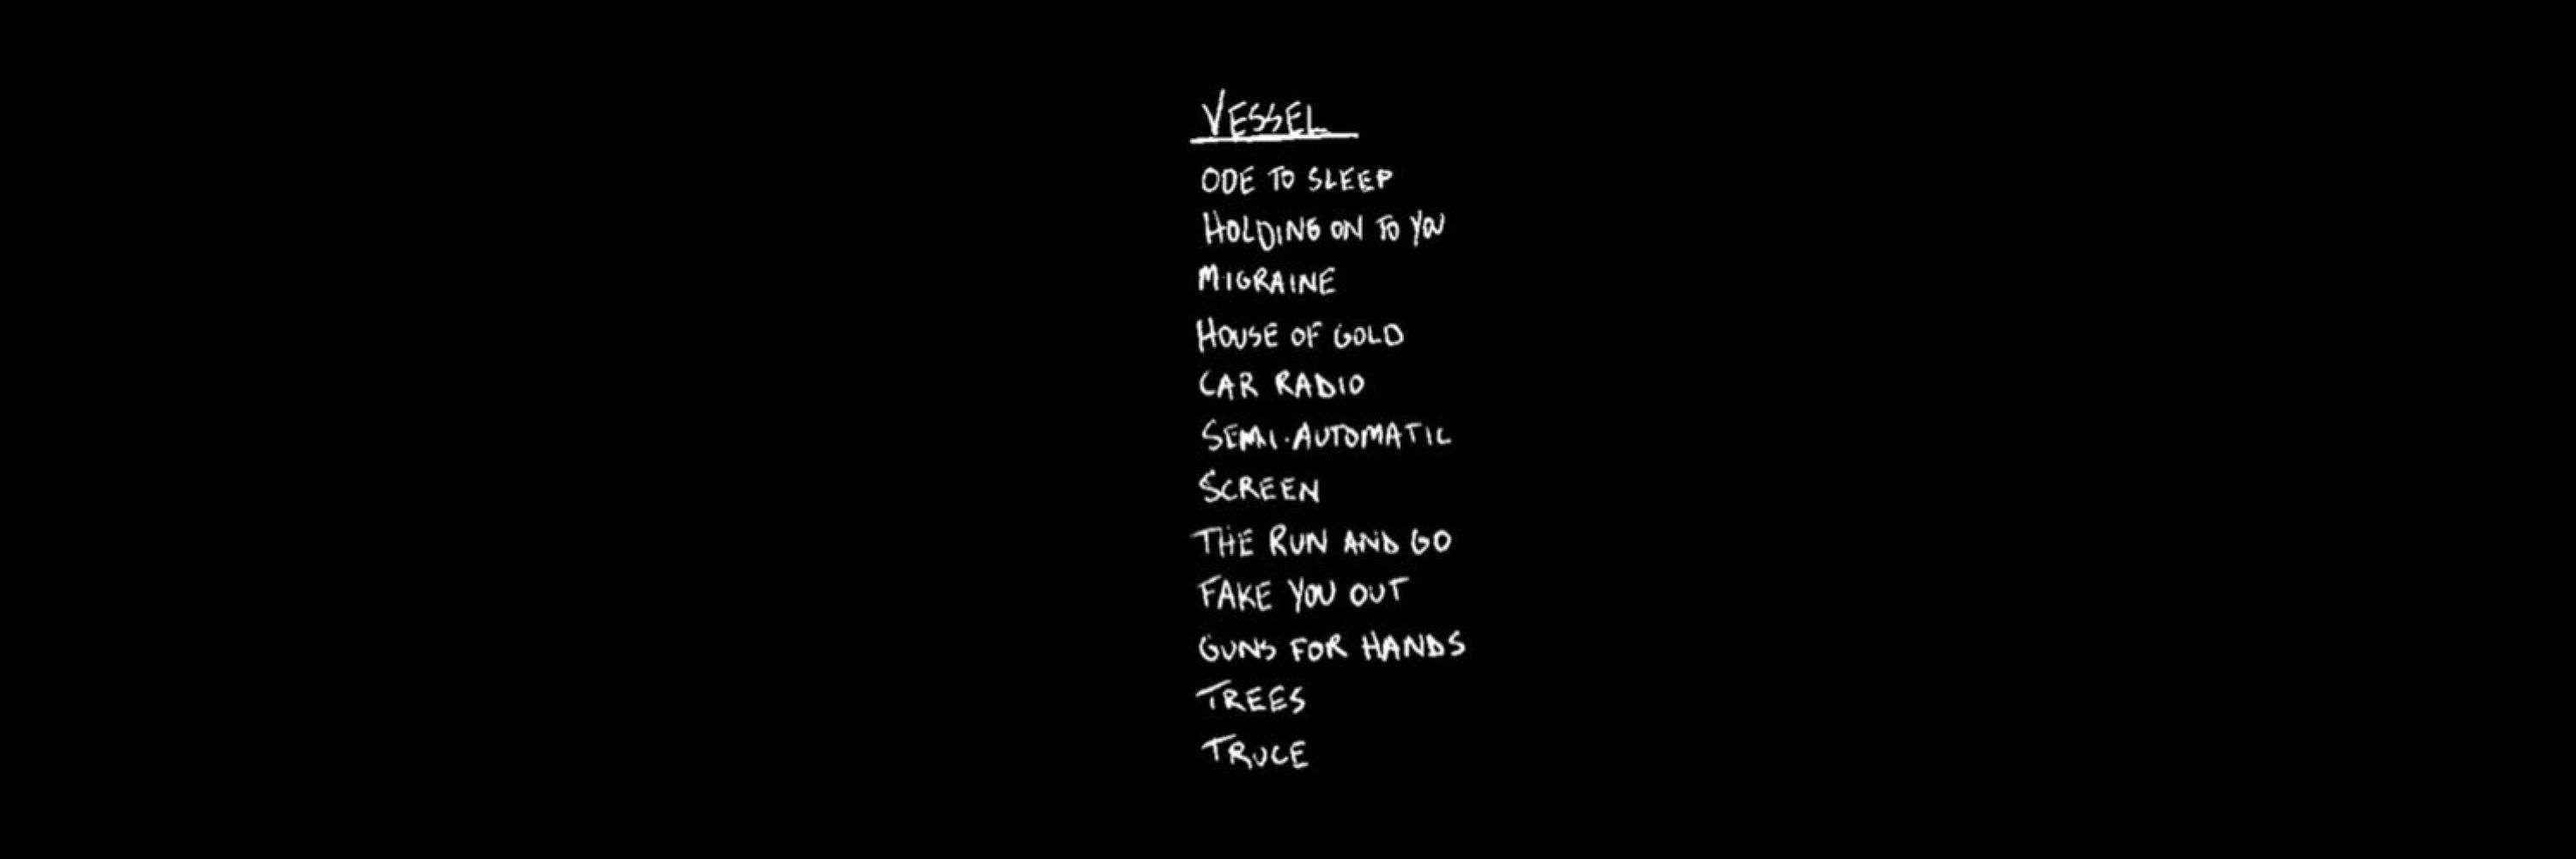 VESSEL
ODE TO SLEEP
HOLDING ON TO YOU
MIGRAINE
HOUSE OF GOLD
CAR RADIO
SEMI-AUTOMATIC
SCREEN
THE RUN AND GO
FAKE YOU OUT
GUNS FOR HANDS
TREES
TRUCE